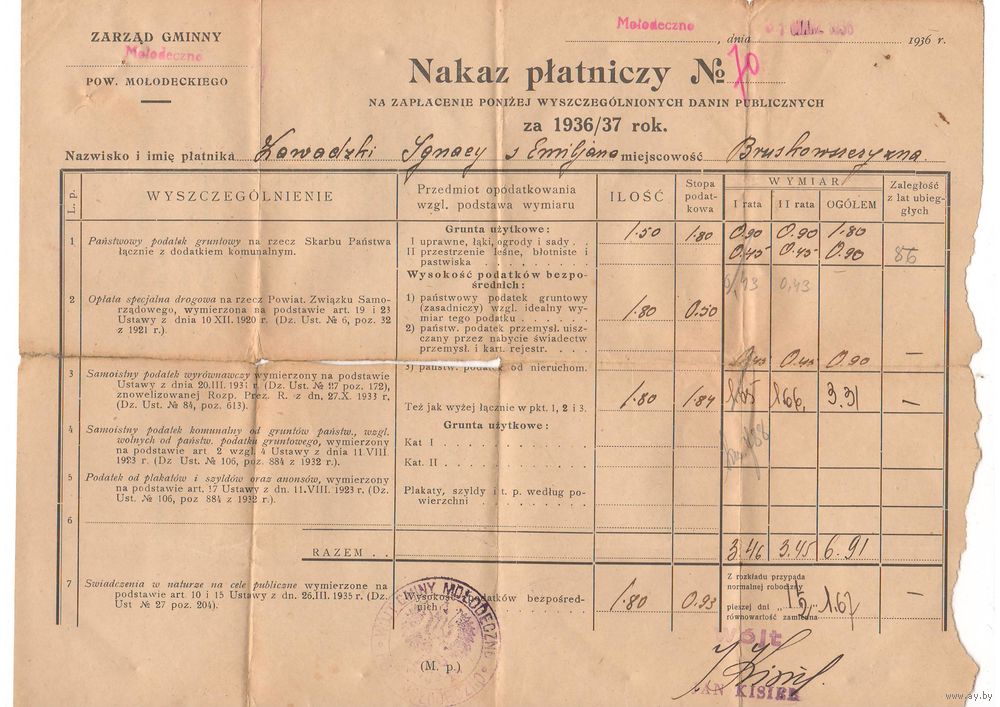 ZARZĄD GMINNY
Mołodeczno
POW. MOŁODECKIEGO
Mołodeczno, dnia 1936 r.
Nakaz płatniczy № 70
NA ZAPŁACENIE PONIŻEJ WYSZCZEGÓLNIONYCH DANIN PUBLICZNYCH
za 1936/37 rok.
Nazwisko i imię płatnika Zawadzki Ignacy s Emiljana miejscowość
L. p.
WYSZCZEGÓLNIENIE
Przedmiot opodatkowania
wzgl. podstawa wymiaru
ILOŚĆ
Stopa
podat-
kowa
WYMIAR
I rata II rata OGÓŁEM
Zaległość
z lat ubieg-
głych
1 Państwowy podatek gruntowy na rzecz Skarbu Państwa
łącznie z dodatkiem komunalnym.
Grunta użytkowe:
I uprawne, łąki, ogrody i sady . .
II przestrzenie leśne, błotniste i
pastwiska . . . . . . . . . .
1.50 1.80 0.90 0.90 1.80
0.45 0.45 0.90 86
0,43 0,43
2 Opłata specjalna drogowa na rzecz Powiat. Związku Samo-
rządowego, wymierzona na podstawie art. 19 i 23
Ustawy z dnia 10 XII. 1920 r. (Dz. Ust. № 6, poz. 32
z 1921 r.).
Wysokość podatków bezpo-
średnich:
1) państwowy podatek gruntowy
(zasadniczy) wzgl. idealny wy-
miar tego podatku . . . . .
2) państw. podatek przemysł. uisz-
czany przez nabycie świadectw
przemysł. i kart. rejestr. . . . .
3) państw. podatek od nieruchom.
1.80 0.50
0.45 0.45 0.90 —
3 Samoistny podatek wyrównawczy wymierzony na podstawie
Ustawy z dnia 20.III. 1931 r. (Dz. Ust. № 27 poz. 172),
znowelizowanej Rozp. Prez. R. z dn. 27.X. 1933 r.
(Dz. Ust. № 84, poz. 613).
Też jak wyżej łącznie w pkt. 1, 2 i 3.
1.80 1.84 1.65 1.66 3.31 —
4 Samoistny podatek komunalny od gruntów państw., wzgl.
wolnych od państw. podatku gruntowego, wymierzony
na podstawie art. 2 wzgl. 4 Ustawy z dnia 11.VIII.
1923 r. (Dz. Ust. № 106, poz. 884 z 1932 r.).
Grunta użytkowe:
Kat I . . . . . . . . . .
Kat. II . . . . . . . . . .
5 Podatek od plakatów i szyldów oraz anonsów, wymierzony
na podstawie art. 17 Ustawy z dn. 11.VIII. 1923 r. (Dz.
Ust. № 106, poz 884 z 1932 r.).
Plakaty, szyldy i t. p. według po-
wierzchni . . . . . . . .
6
RAZEM . .
3.46 3.45 6.91
7 Świadczenia w naturze na cele publiczne wymierzone na
podstawie art. 10 i 15 Ustawy z dn. 26.III. 1935 r. (Dz.
Ust № 27 poz. 204).
Wysokość podatków bezpośred-
nich
1.80 0.93
Z rozkładu przypada
normalnej robocizny
pieszej dni
równowartość zamienna 1.67
—
(M. p.)
Wójt
JAN KISIEL
www.ay.by